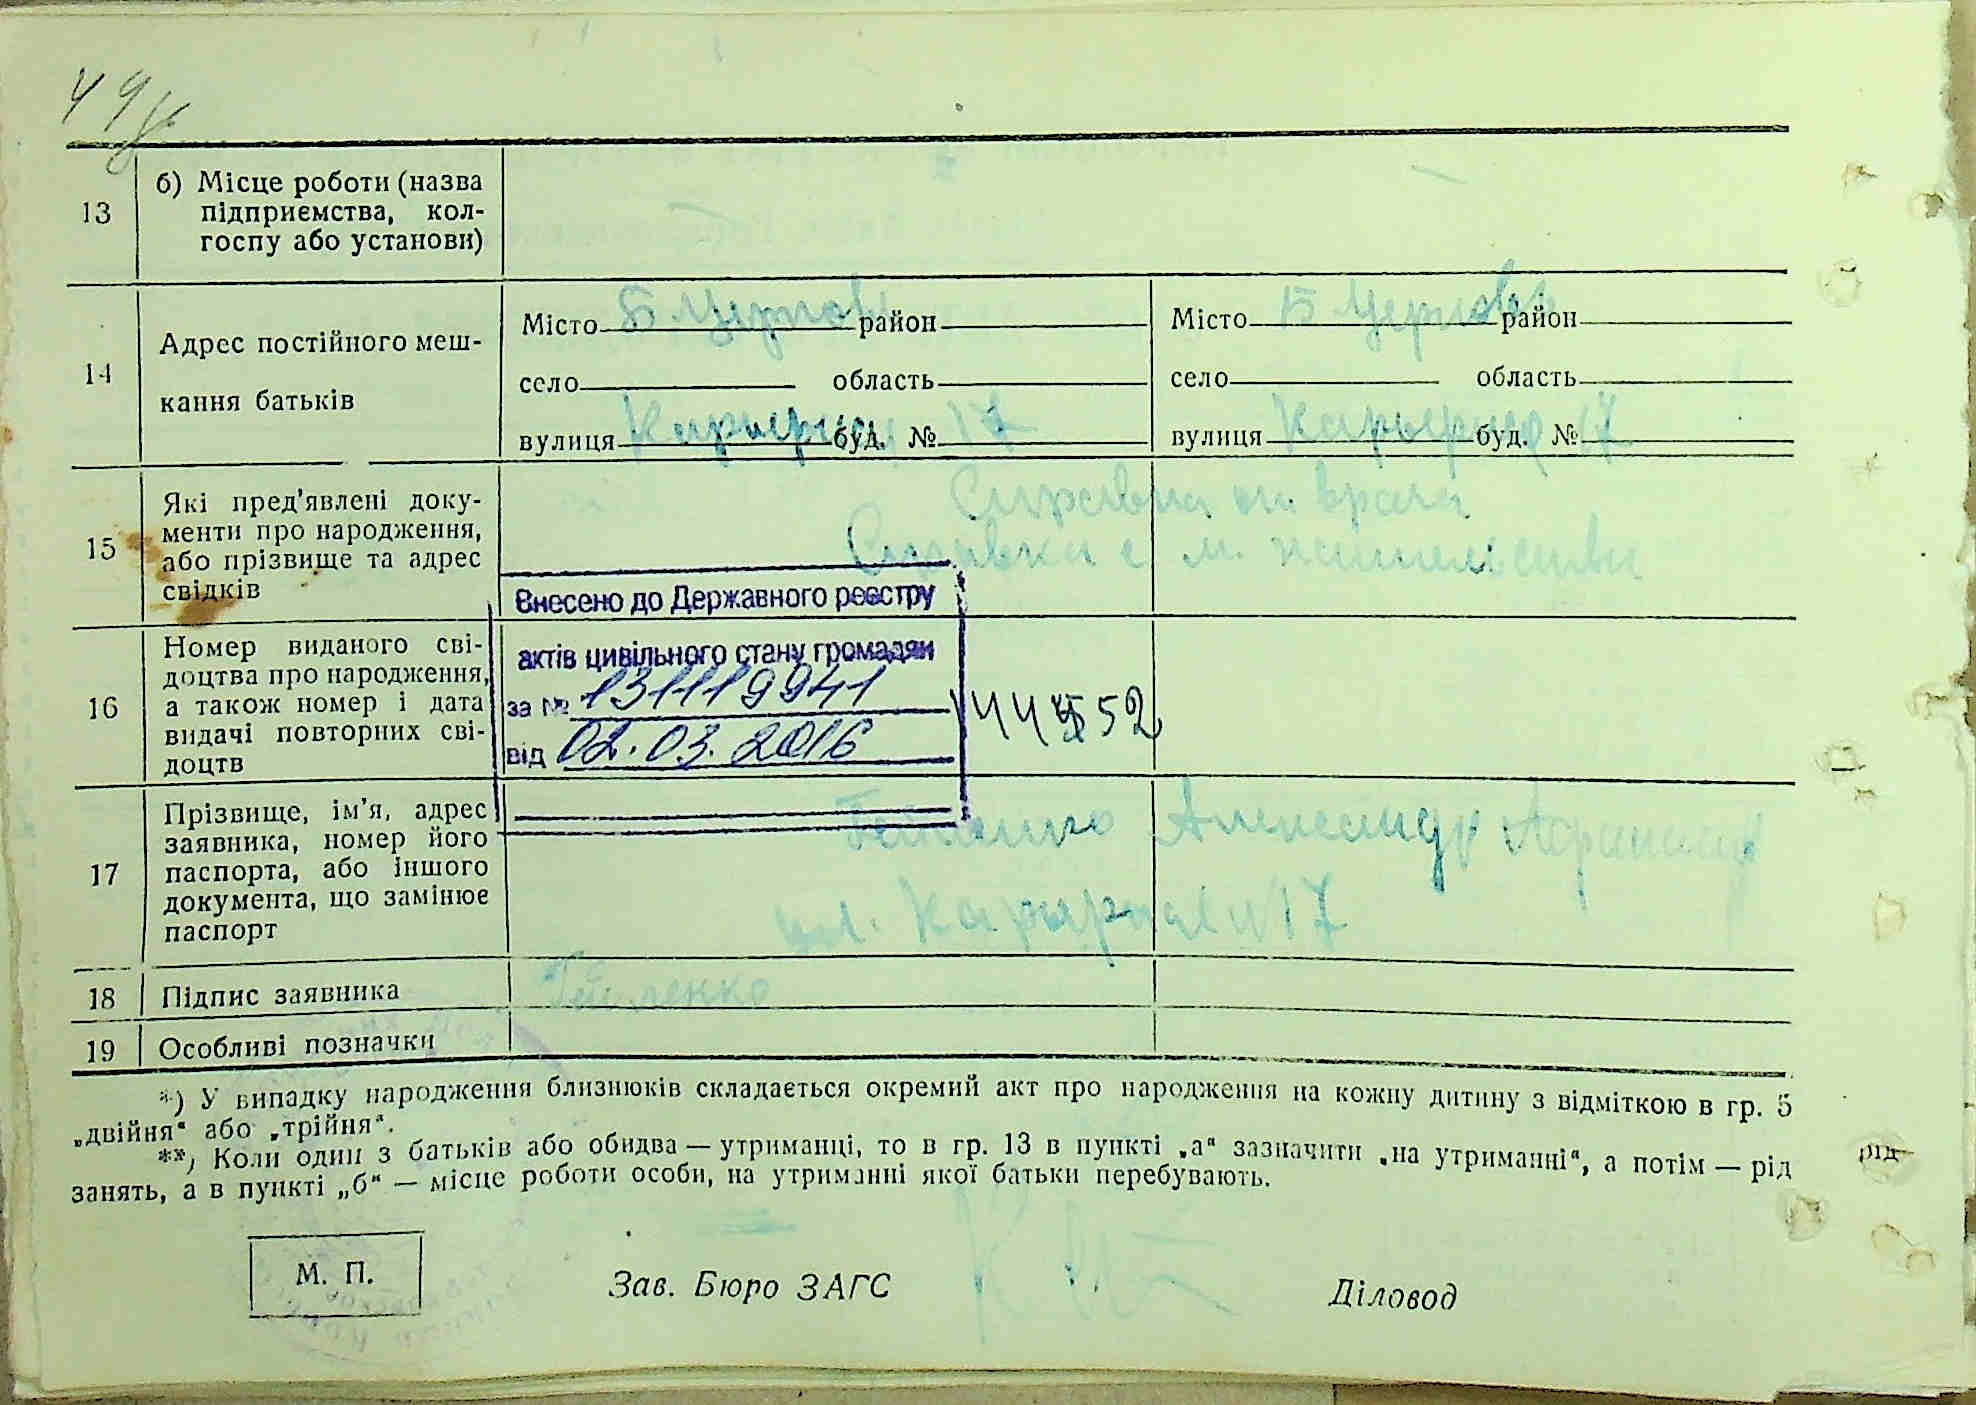 49
13
б) Місце роботи (назва
підприємства, кол-
госпу або установи)
14
Адрес постійного меш-
кання батьків
Місто Б Церковь район
село область
вулиця Карьерная буд. № 17
Місто Б Церковь район
село область
вулиця Карьерная буд. № 17
15
Які пред'явлені доку-
менти про народження,
або прізвище та адрес
свідків
Справка от врача
Справка с м. жительства
Внесено до Державного реєстру
актів цивільного стану громадян
за № 131119941
від 02.03.2016
16
Номер виданого сві-
доцтва про народження,
а також номер і дата
видачі повторних сві-
доцтв
17
Прізвище, ім'я, адрес
заявника, номер його
паспорта, або іншого
документа, що замінює
паспорт
Александр
ул. Карьерная 17
18
Підпис заявника
19
Особливі позначки
*) У випадку народження близнюків складається окремий акт про народження на кожну дитину з відміткою в гр. 5
„двійня“ або „трійня“.
**) Коли один з батьків або обидва — утриманці, то в гр. 13 в пункті „а“ зазначити „на утриманні“, а потім — рід
занять, а в пункті „б“ — місце роботи особи, на утриманні якої батьки перебувають.
рід
М. П.
Зав. Бюро ЗАГС
Діловод